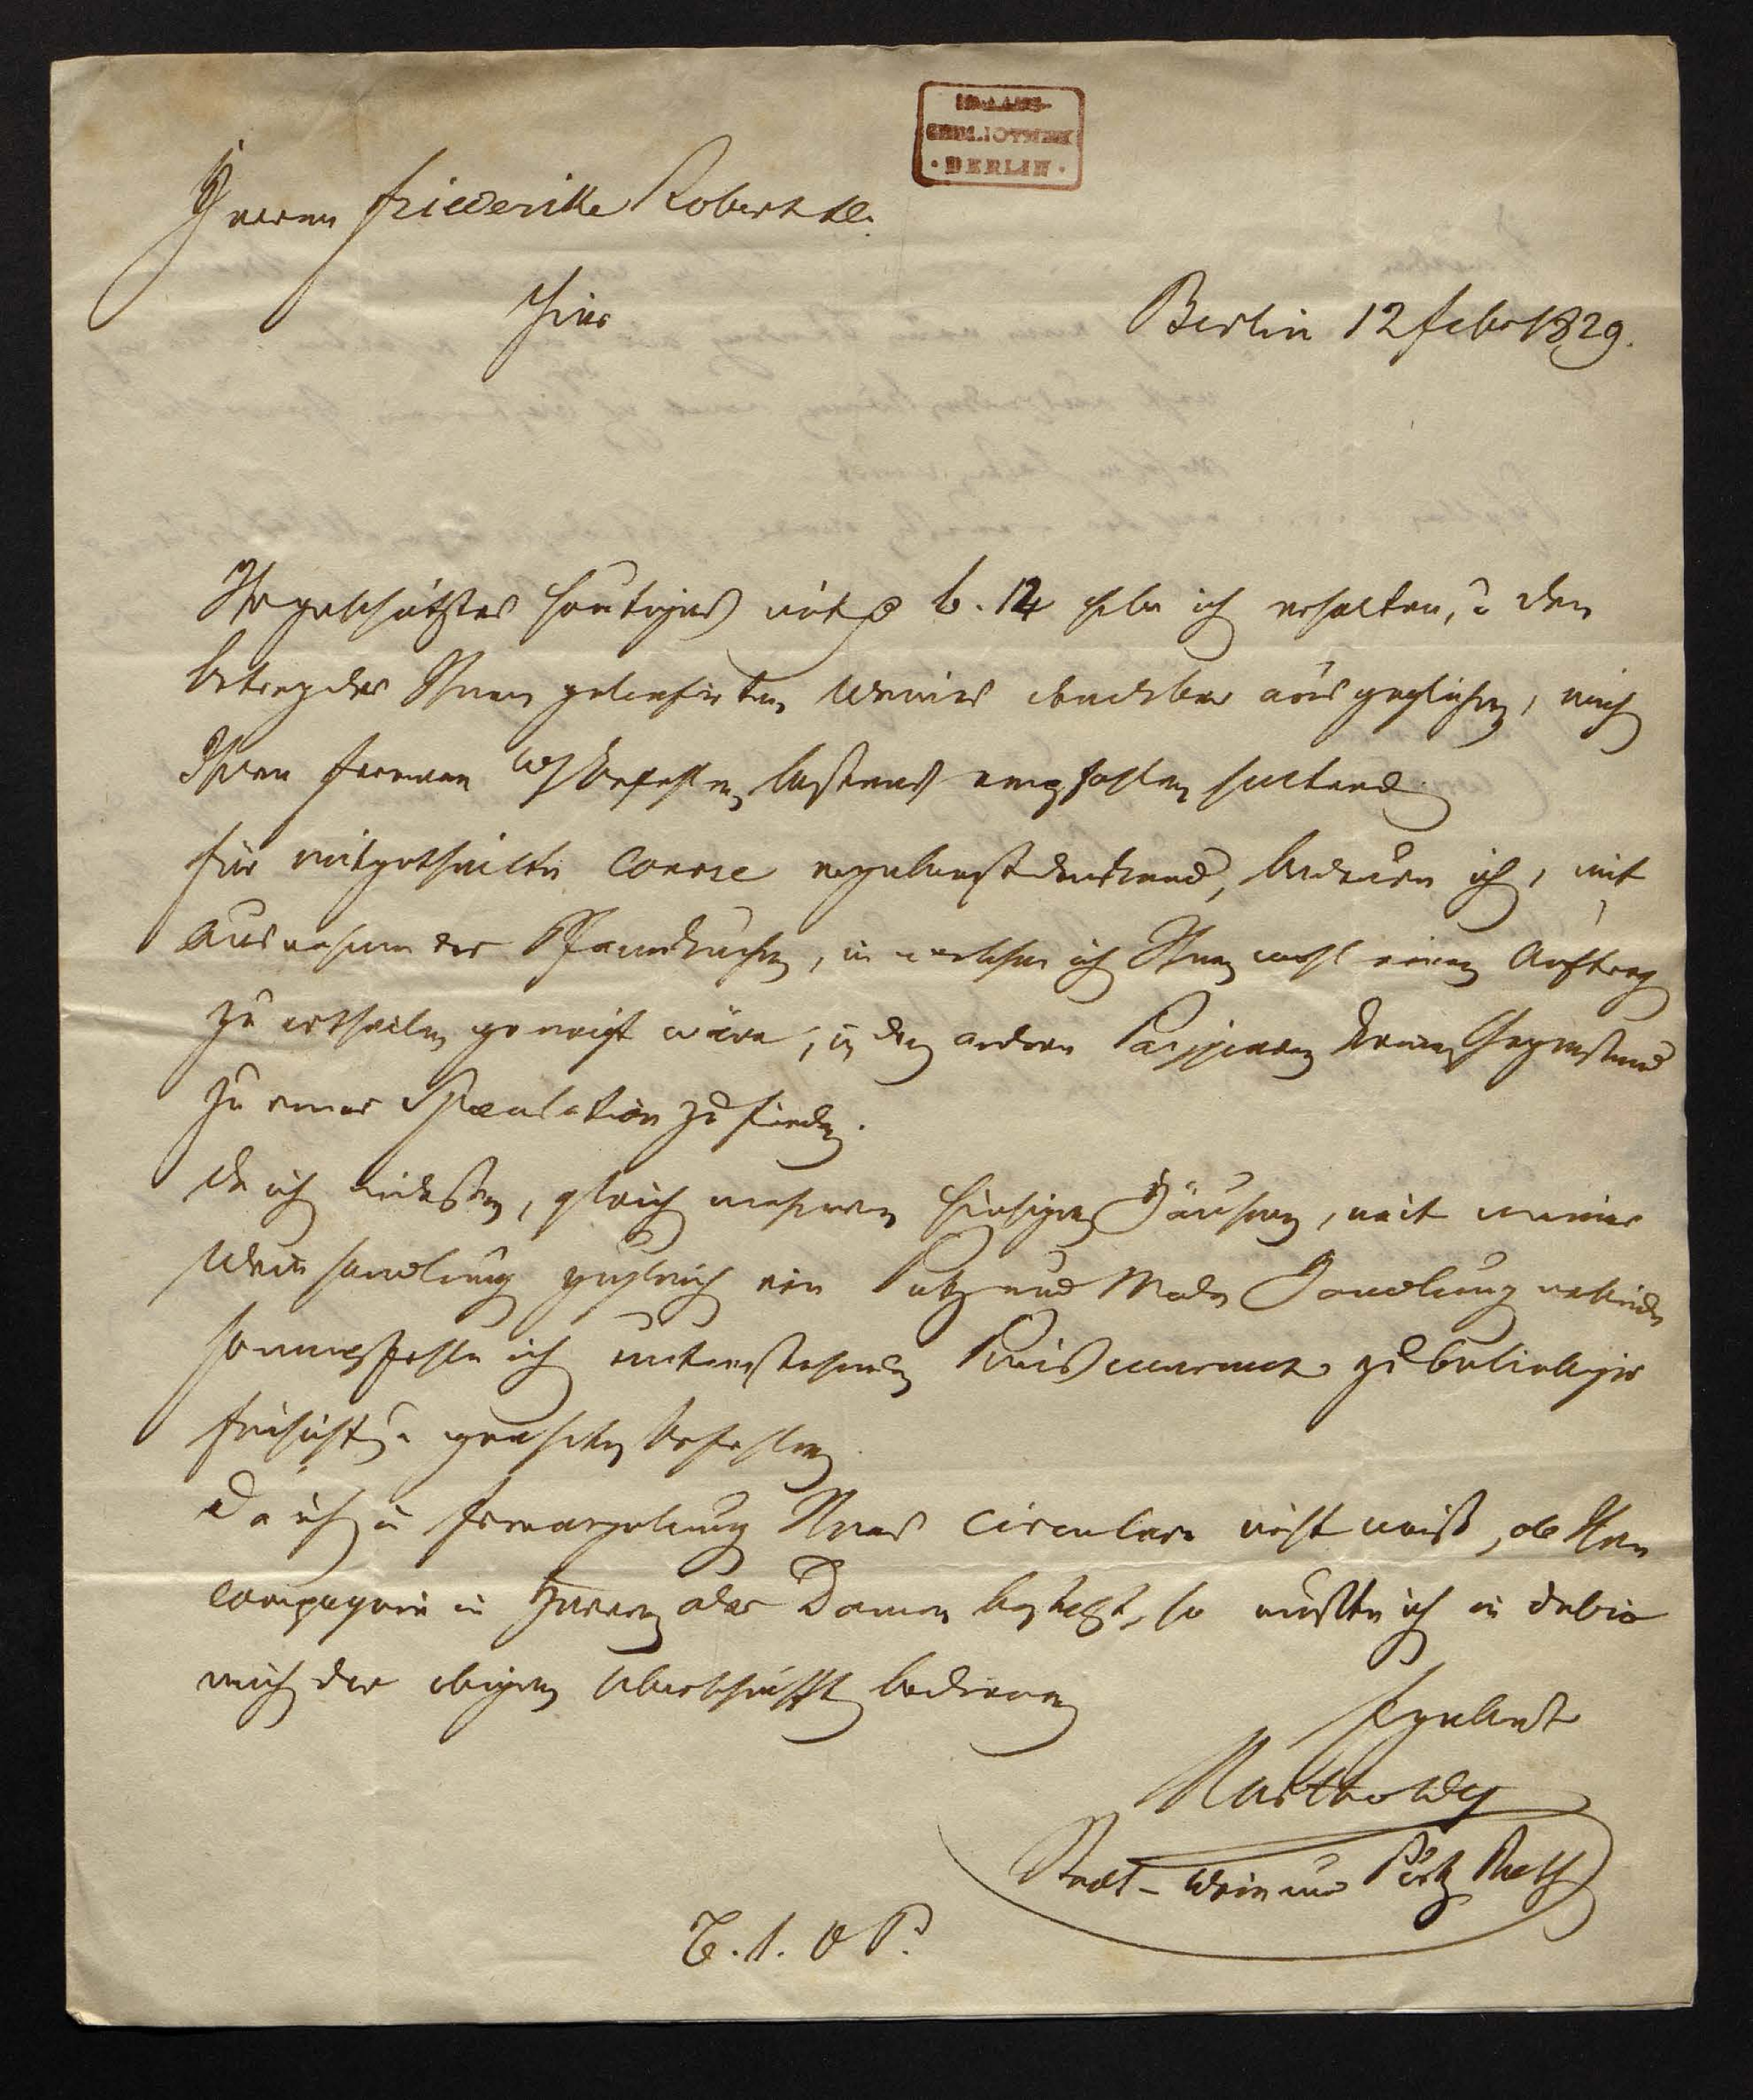 STAATS-
BIBLIOTHEK
• BERLIN •
Herren Friederike Robert &
Hier
Berlin 12 Febr 1829.
Ihr geschätztes heutiges mit 6. 14 habe ich erhalten, u den
betrag der Ihnen gelieferten Weine dankbar ausgeglichen, mich
Ihren ferneren Befehlen bestens empfohlen haltend
für mitgetheilte Course ergebenst dankend, bedaure ich, mit
Ausnahme der Pfannkuchen, in welchen ich Ihnen wohl einen Auftrag
zu ertheilen geneigt wäre, in den andren Papieren keinen Gegenstand
zu einer Speculation zu finden.
da ich indessen, gleich mehreren hiesigen Häusern, mit meiner
Weinhandlung zugleich eine Putz und Mode Handlung verbinde
so empfehle ich untenstehenden Preis courant zu beliebiger
Einsicht u gefälligen Befehlen
Da ich in Ermangelung Ihres Circulars nicht weiß, ob Ihre
Compagnie in Herren oder Damen besteht, so mußte ich in dubio
mich der obigen Überschrift bedienen
Ergebenst
Bartholdy
Stadt- Wein und Putz Rath
T.1. O P.